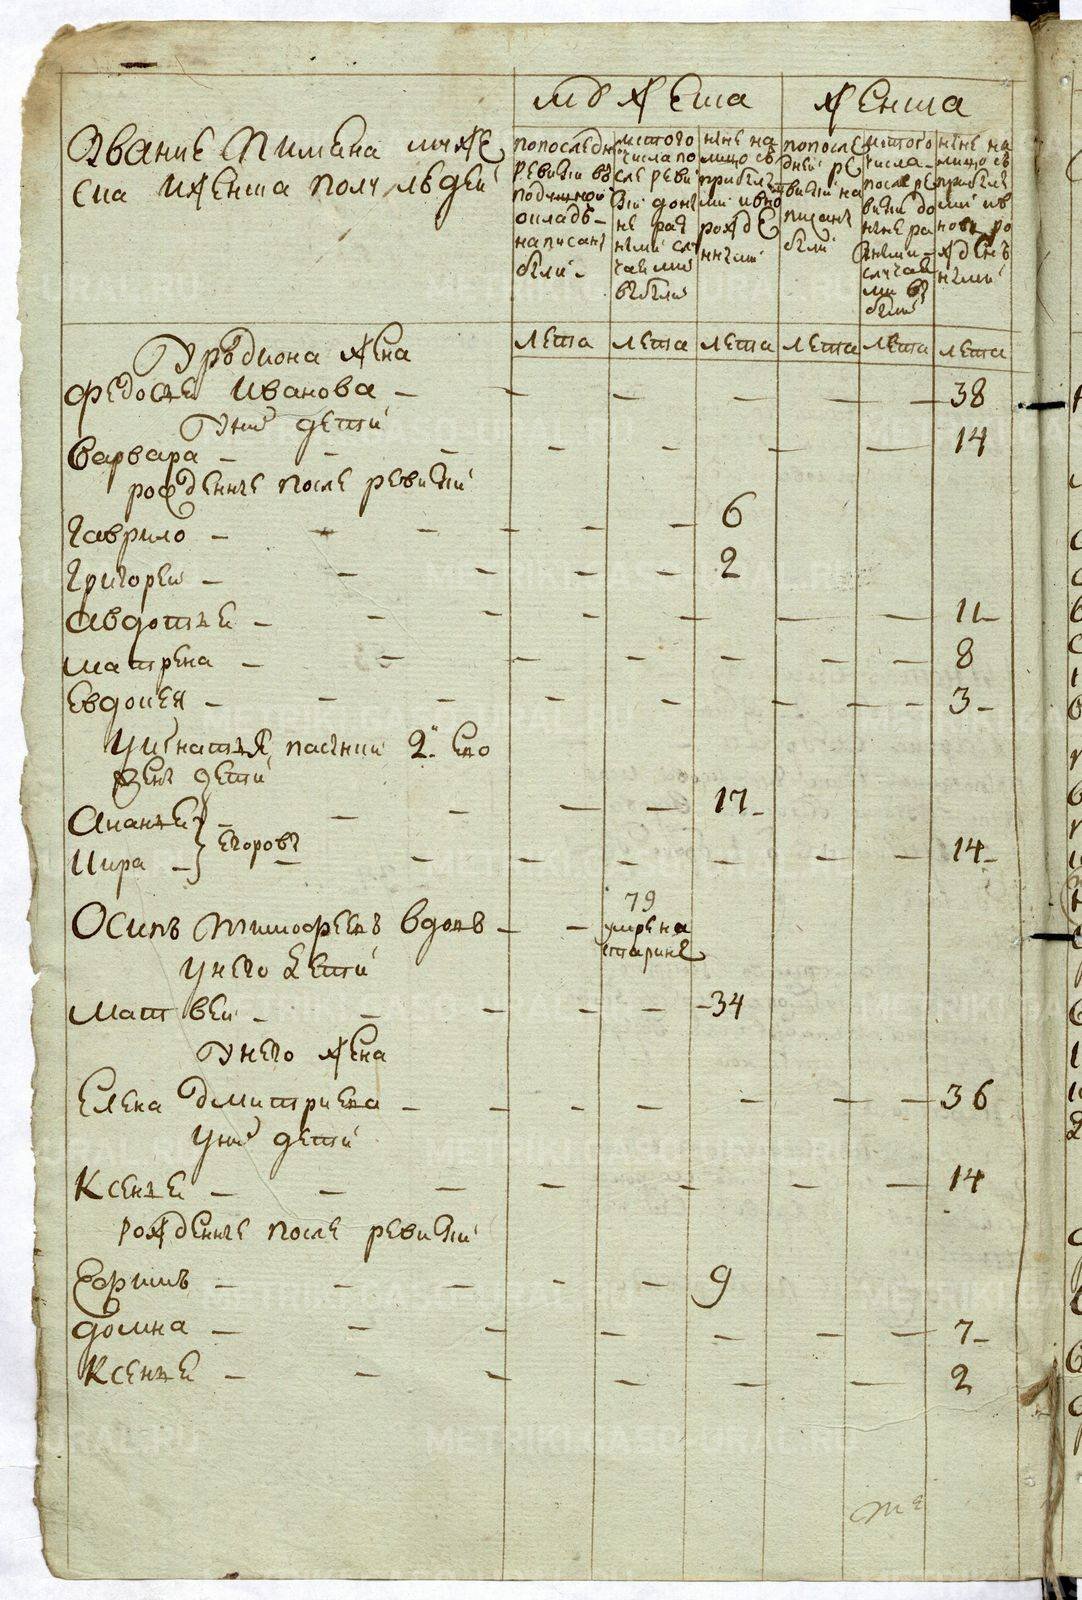 мужеска
женска
Звание и имена муже
ска и женска полу людей
по последн
ревизии въ
подушной
окладъ
написанъ
были
ис того
числа по
сле реви
зии доны
не раз
ными слу
чаи
выбыли
ныне на
лицо съ
прибыл
ми и вно
рожде
нными
по после
дней ре
визии на
писаны
были
ис того
числа
после ре
визии до
ныне ра
зными
случаи
ми вы
были
ныне на
лицо съ
прибыл
ми и в
новь ро
жден
ными
лета лета лета лета лета лета
У родиона жена
Федосья Иванова - 38
У них дети
Варвара - 14
рожденные после ревизии
Гаврило - 6
Григореи - 2
Авдотья - 11
Матрена - 8
Евдокея - 3
У Игнатья пасынки 2 ево
жены дети
Ананья - 17
Егоровы
Кира - 14
79
Осипъ Тимофеевъ вдовъ - умре на
старине
У него дети
Матвеи - 34
У него жена
Елена Дмитриева - 36
У них дети
Ксенья - 14
рожденные после ревизии
Ефимъ - 9
Домна - 7
Ксенья - 2
METRIKI.GASO-URAL.RU